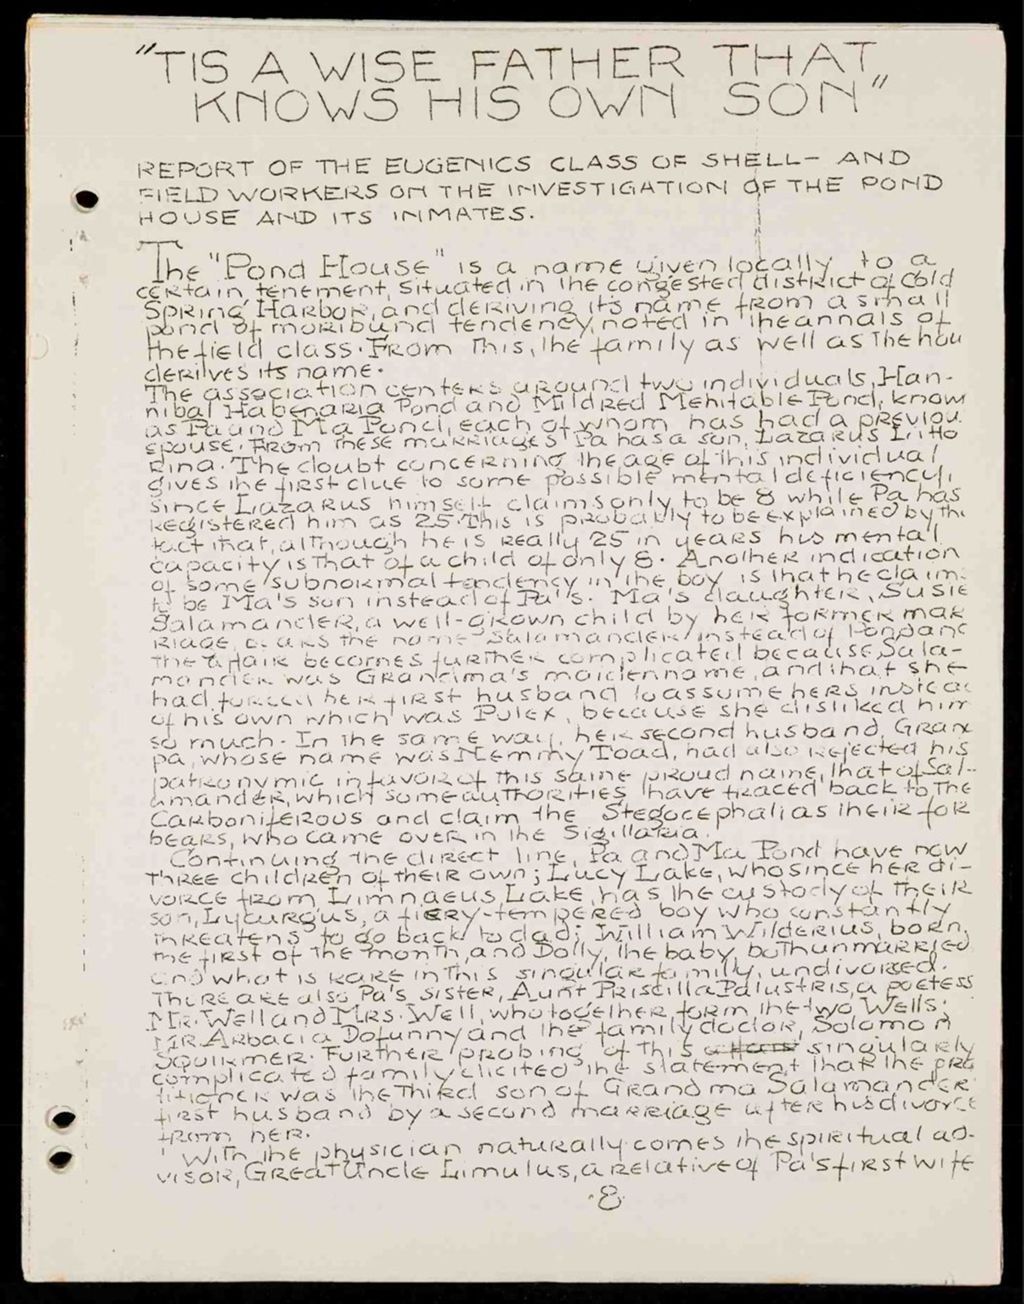 "TIS A WISE FATHER THAT
KNOWS HIS OWN SON"
REPORT OF THE EUGENICS CLASS OF SHELL- AND
FIELD WORKERS ON THE INVESTIGATION OF THE POND
HOUSE AND ITS INMATES.
The "Pond House" is a name given locally to a
certain tenement, situated in the congested district of Cold
Spring Harbor, and deriving its name from a small
pond of moribund tendency, noted in the annals of
the field class. From this, the family as well as the hou
derilves its name.
The association centers around two individuals, Han-
nibal Habenaria Pond and Mildred Mehitable Pond, know
as Pa and Ma Pond, each of whom has had a previou
spouse. From these marriages Pa has a son, Lazarus Litto
rina. The doubt concerning the age of this individual
gives the first clue to some possible mental deficiency,
since Lazarus himself claims only to be 8 while Pa has
registered him as 25. This is probably to be explained by the
fact that, although he is really 25 in years his mental
capacity is that of a child of only 8. Another indication
of some subnormal tendency in the boy is that he claim
to be Ma's son instead of Pa's. Ma's daughter, Susie
Salamander, a well-grown child by her former mar
riage, bears the name Salamander instead of Pond and
the affair becomes further complicated because Sala-
mander was Grandma's maiden name, and that she
had forced her first husband to assume hers instead
of his own which was Pulex, because she disliked him
so much. In the same way, her second husband, Gran
pa, whose name was Hemmy Toad, had also rejected his
patronymic in favor of this same proud name, that of Sal-
amander, which some authorities have traced back to the
Carboniferous and claim the Stegocephalias their for
bears, who came over in the Sigillaria.
Continuing the direct line, Pa and Ma Pond have now
three children of their own; Lucy Lake, who since her di-
vorce from Limnaeus Lake, has the custody of their
son, Lycurgus, a fiery-tempered boy who constantly
threatens to go back to dad; William Wilderius, born
the first of the month, and Dolly, the baby, both unmarried
and what is rare in this singular family, undivorced.
There are also Pa's sister, Aunt Priscilla Palustris, a poetess
Mr. Well and Mrs. Well, who together form the two Wells;
Mr. Arbacia Dofunny and the family doctor, Solomon
Squimmer. Further probing of this singularly
complicated family elicited the statement that the pra
titioner was the third son of Grandma Salamander
first husband by a second marriage after his divorce
from her.
With the physician naturally comes the spiritual ad-
visor, Great Uncle Limulus, a relative of Pa's first wife
·8·